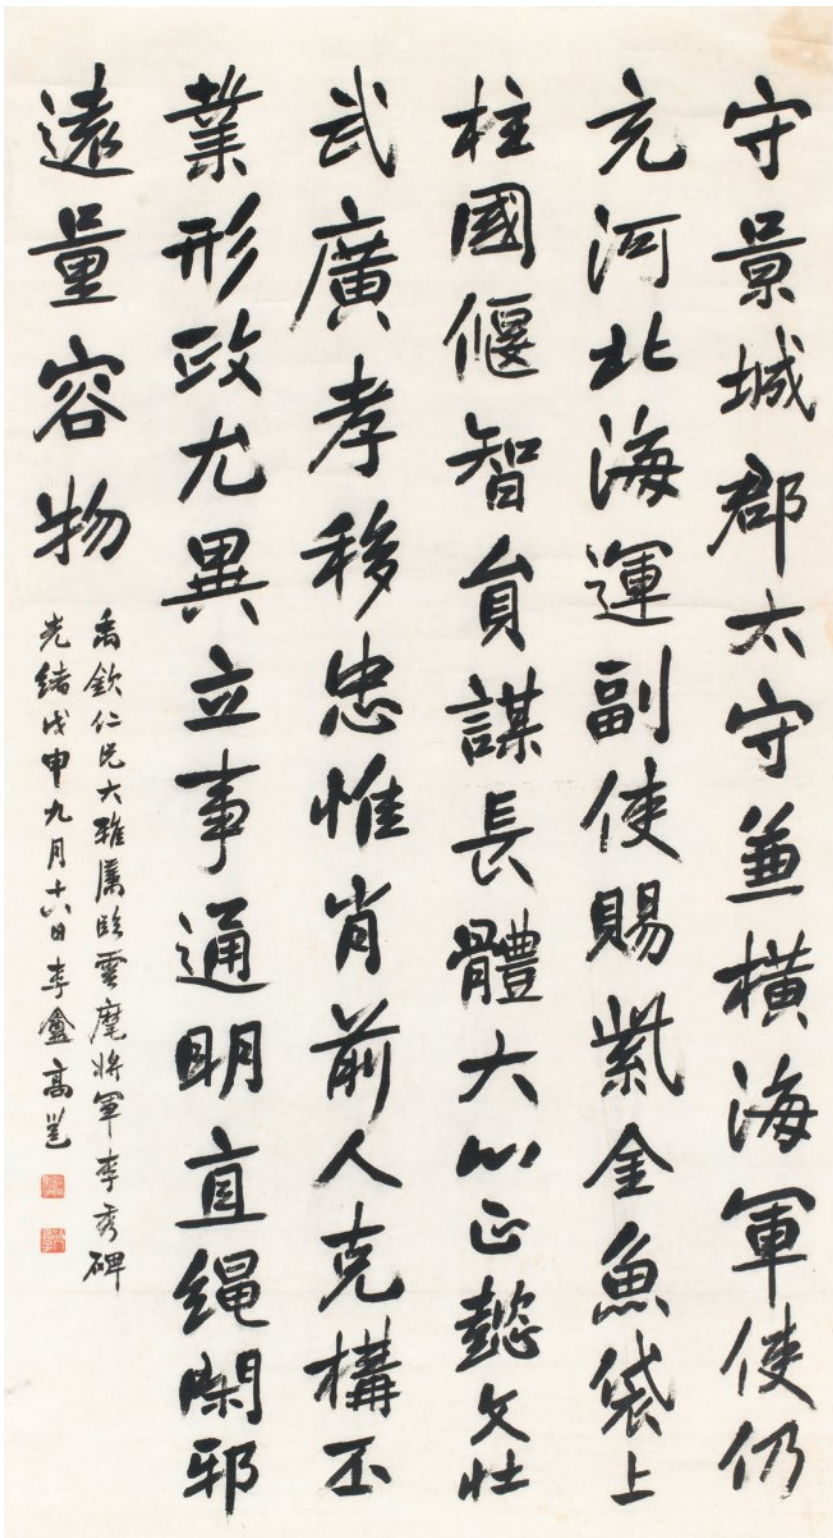 守景城郡太守兼橫海軍使仍
充河北海運副使賜紫金魚袋上
柱國偃智員謀長體大心正懿文壯
武廣孝移忠惟肖前人克構丕
業形政尤異立事通明直绳閑邪
遠量容物
禹欽仁兄大雅属臨雲麾将軍李秀碑
光緒戊申九月十六日李盦高邕